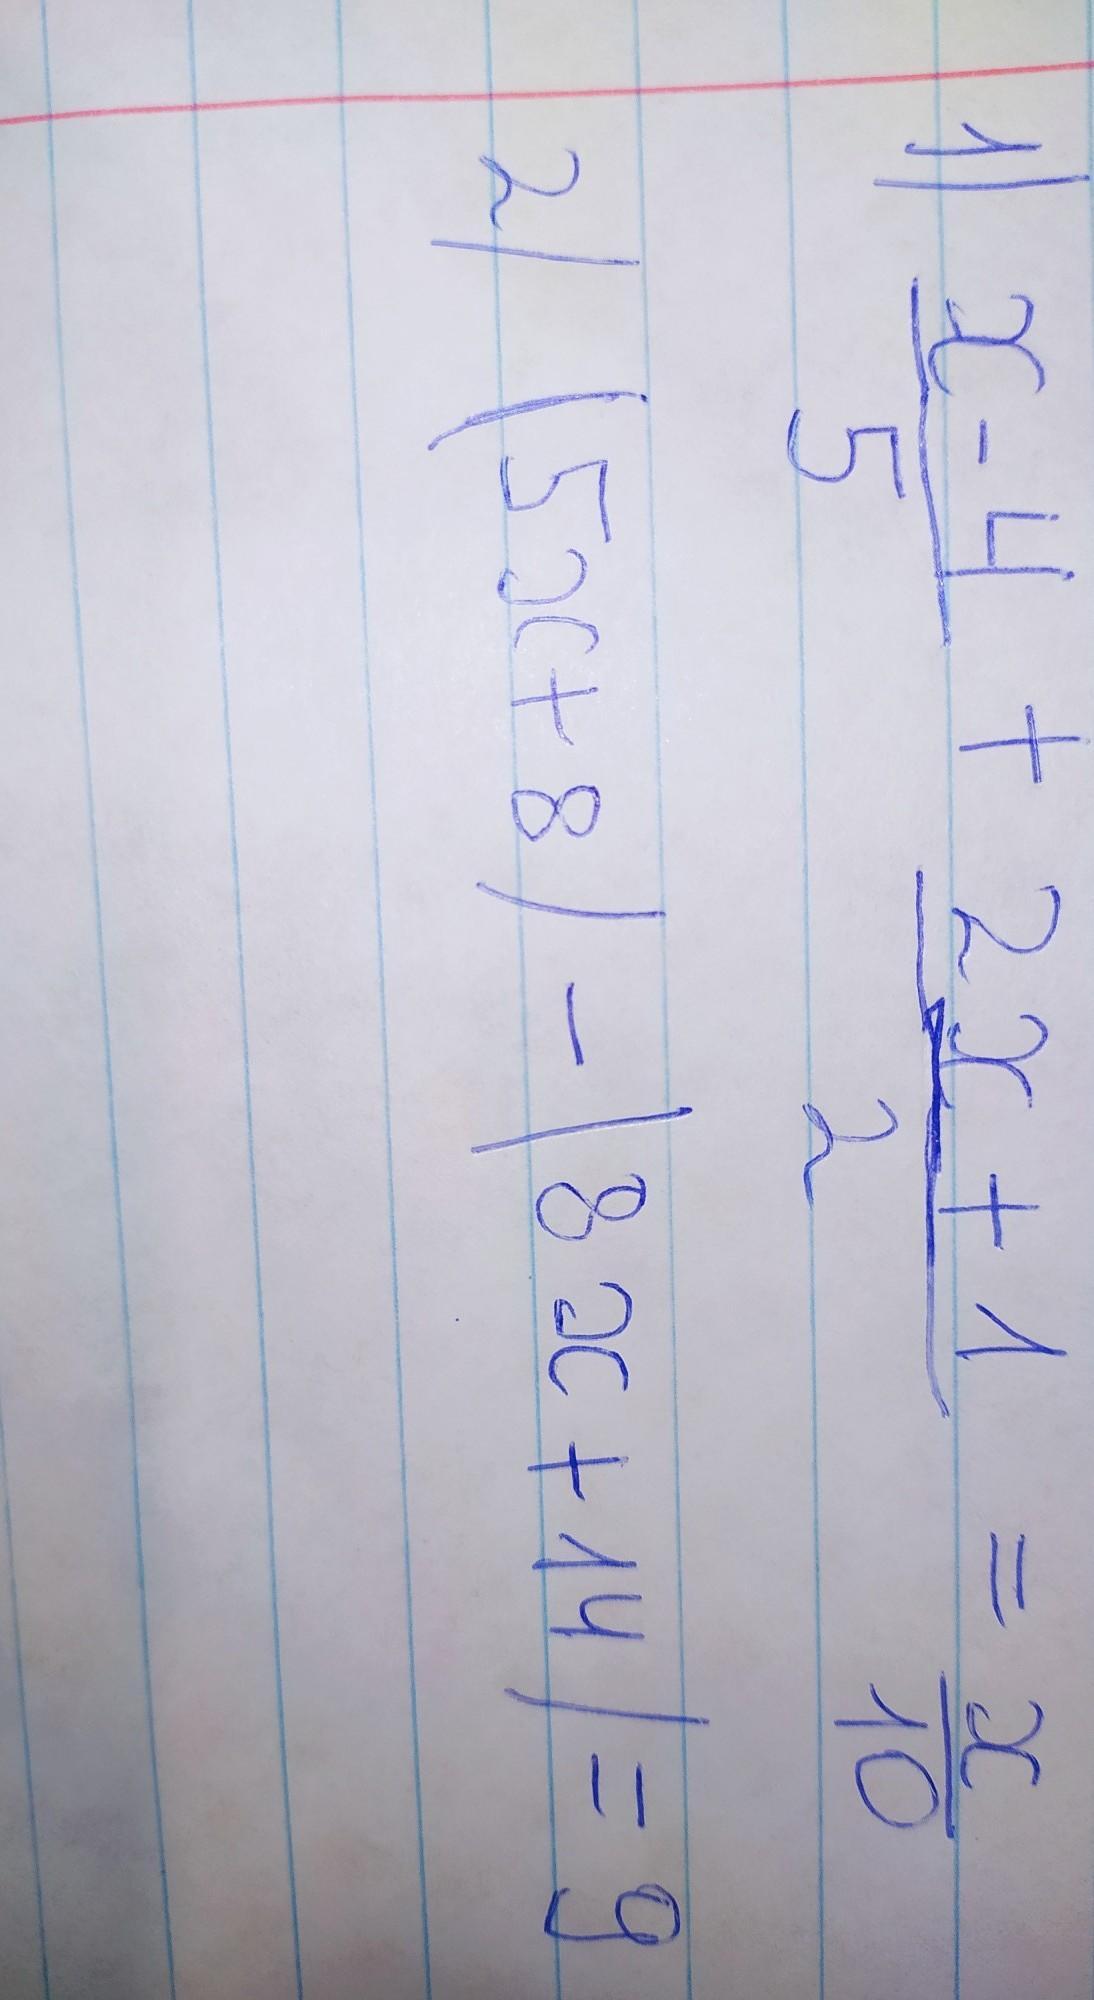 1) x-4/5 + 2x+1/2 = x/10
2) (5x+8) - (8x+14) = 9